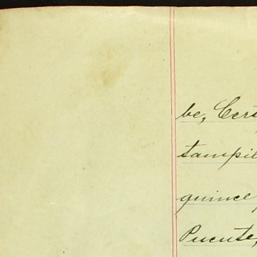 be, Cer
tampil
quince,
Puente,